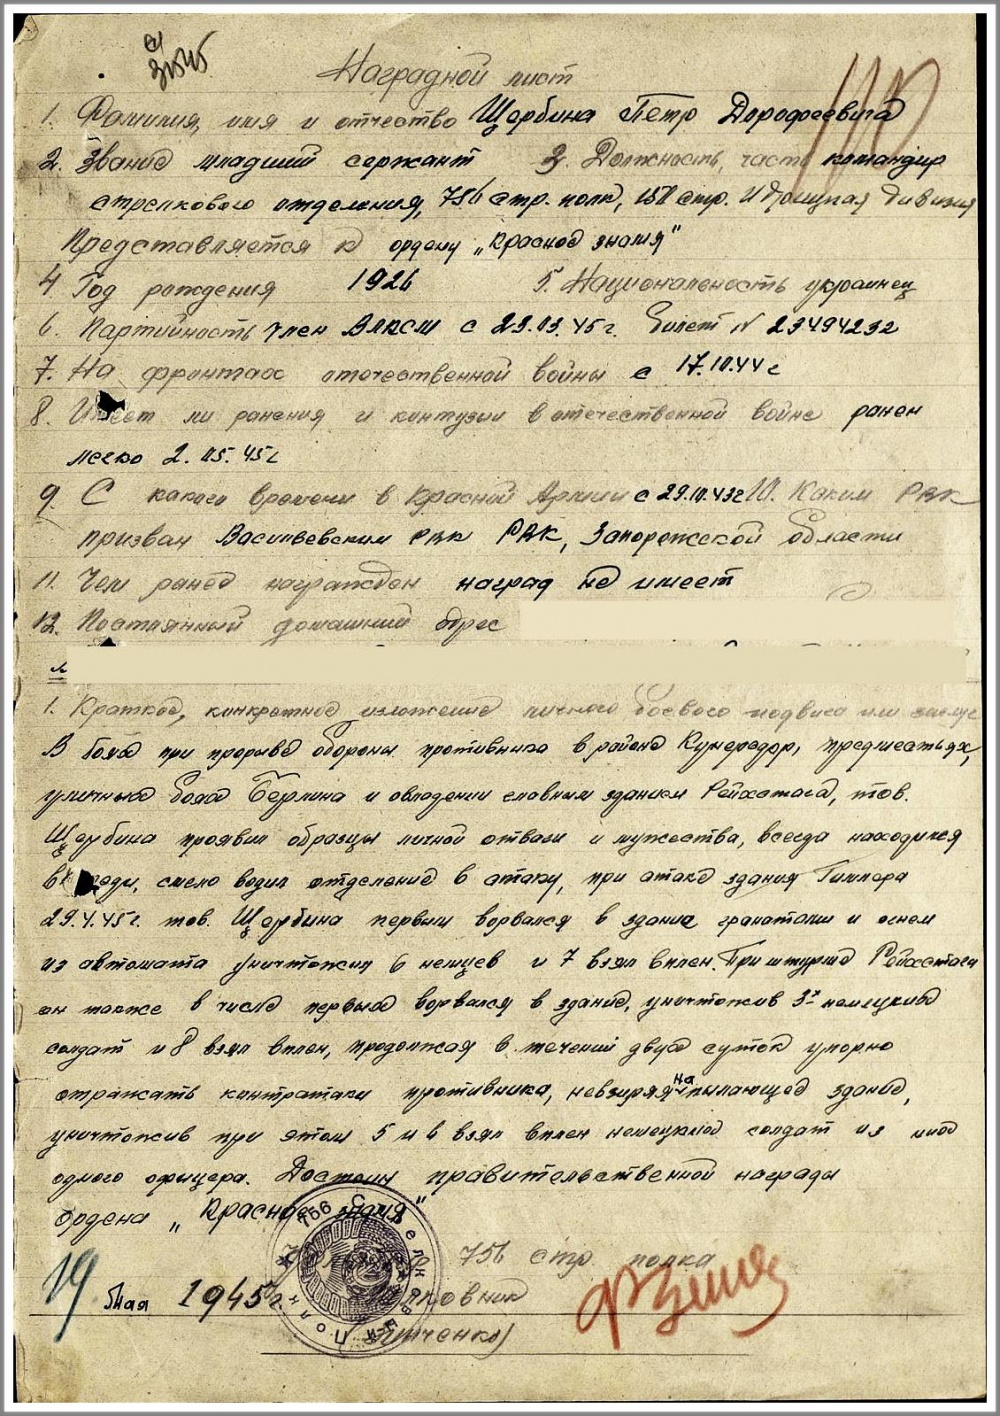 Наградной лист
1. Фамилия, имя и отчество Щербина Пётр Дорофеевич
2. Звание младший сержант 3. Должность, часть командир
стрелкового отделения, 756 стр. полк, 150 стр. Идрицкая дивизия
Представляется к ордену „Красное знамя"
4. Год рождения 1926 5. Национальность украинец
6. Партийность член ВЛКСМ с 23.03.45 г. Билет N 23494232
7. На фронтах отечественной войны с 17.10.44 г
8. Имеет ли ранения и контузии в отечественной войне ранен
легко 2.05.45 г
9. С какого времени в Красной Армии с 29.10.43 г 10. Каким РВК
призван Васильевским РВК, Запорожской области
11. Чем ранее награжден наград не имеет
12. Постоянный домашний адрес
1. Краткое, конкретное изложение личного боевого подвига или заслуг
В боях при прорыве обороны противника в районе Кунередор, предместьях,
уличных боях Берлина и овладении главным зданием Рейхстага, тов.
Щербина проявил образцы личной отваги и мужества, всегда находился
впереди, смело водил отделение в атаку, при атаке здания Гимлера
29.4.45 г. тов. Щербина первым ворвался в здание гранатами и огнем
из автомата уничтожил 6 немцев и 7 взял в плен. При штурме Рейхстага
он также в числе первых ворвался в здание, уничтожив 3х немецких
солдат и 8 взял в плен, продолжая в течении двух суток упорно
отражать контратаки противника, невзирая на пылающее здание,
уничтожив при этом 5 и 6 взял в плен немецких солдат из них
одного офицера. Достоин правительственной награды
ордена „Красное знамя"
756 стр. полка
19 мая 1945 г. Полковник
(Зинченко)